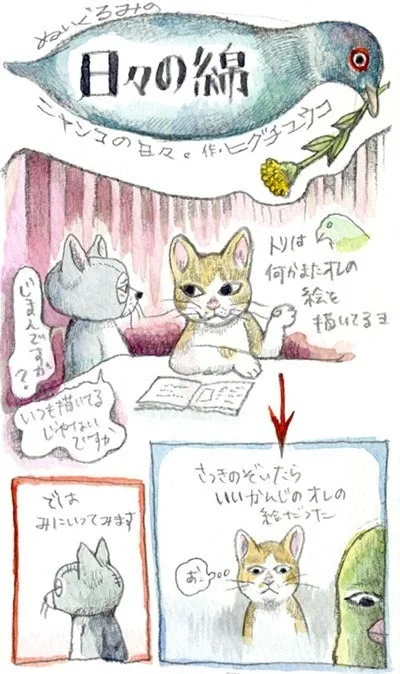 ぬいぐるみの
日々の綿
ニャンコの日々。作・ヒグチユウコ
トリは
何かまたオレの
絵を
描いてるヨ
じまんですか
?
いつも描いてる
じゃない
ですか
さっきのぞいたら
いいかんじのオレの
絵だった
おっ○○○
では
みにいってみます